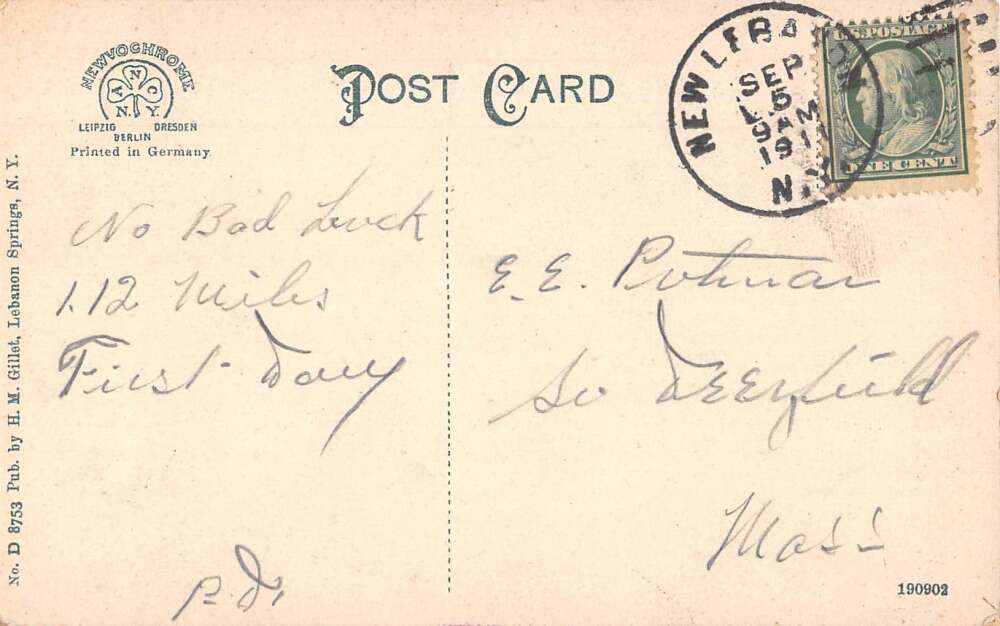 NEWVOCHROME
A N C
N.Y.
LEIPZIG DRESDEN
BERLIN
Printed in Germany.
POST CARD
NEW LEBANON
SEP
5
9 AM
1911
N.Y.
U.S. POSTAGE
ONE CENT
No. D 8753 Pub. by H. M. Gillet, Lebanon Springs, N. Y.
No Bad Luck
112 Miles
First Day
P.D.
E. E. Putnam
So Deerfield
Mass
190902